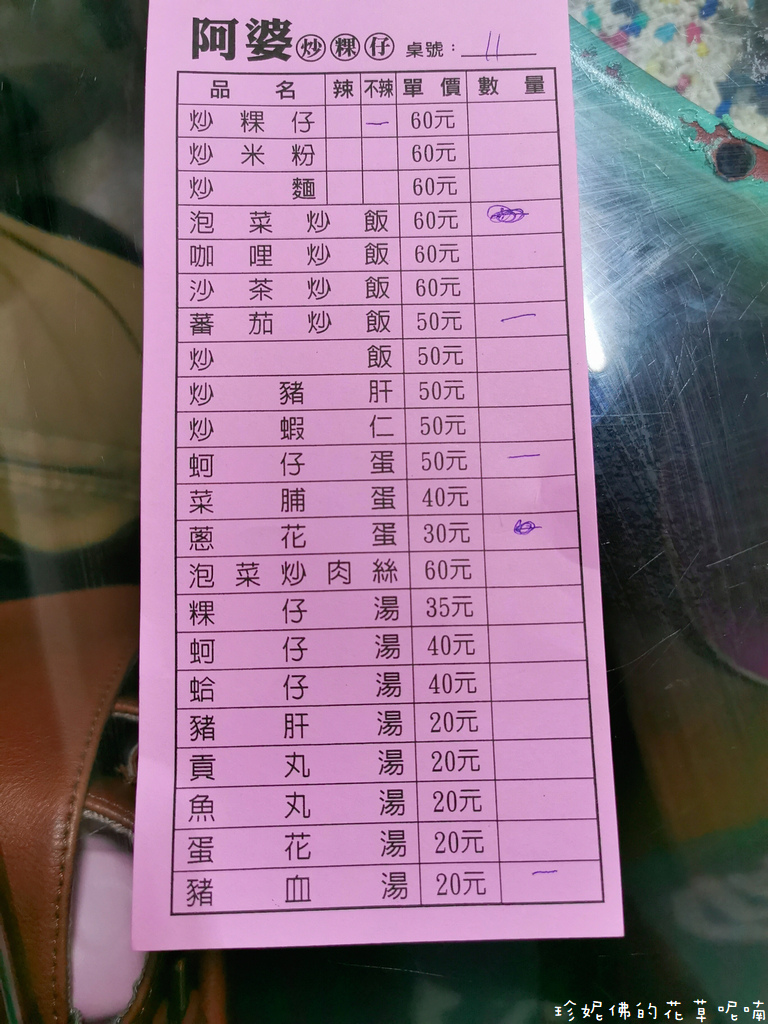 阿婆炒粿仔 桌號：11
品名 辣 不辣 單價 數量
炒粿仔 一 60元
炒米粉 60元
炒麵 60元
泡菜炒飯 60元
咖哩炒飯 60元
沙茶炒飯 60元
蕃茄炒飯 50元 一
炒飯 50元
炒豬肝 50元
炒蝦仁 50元
蚵仔蛋 50元 一
菜脯蛋 40元
蔥花蛋 30元
泡菜炒肉絲 60元
粿仔湯 35元
蚵仔湯 40元
蛤仔湯 40元
豬肝湯 20元
貢丸湯 20元
魚丸湯 20元
蛋花湯 20元
豬血湯 20元 一
珍妮佛的花草呢喃